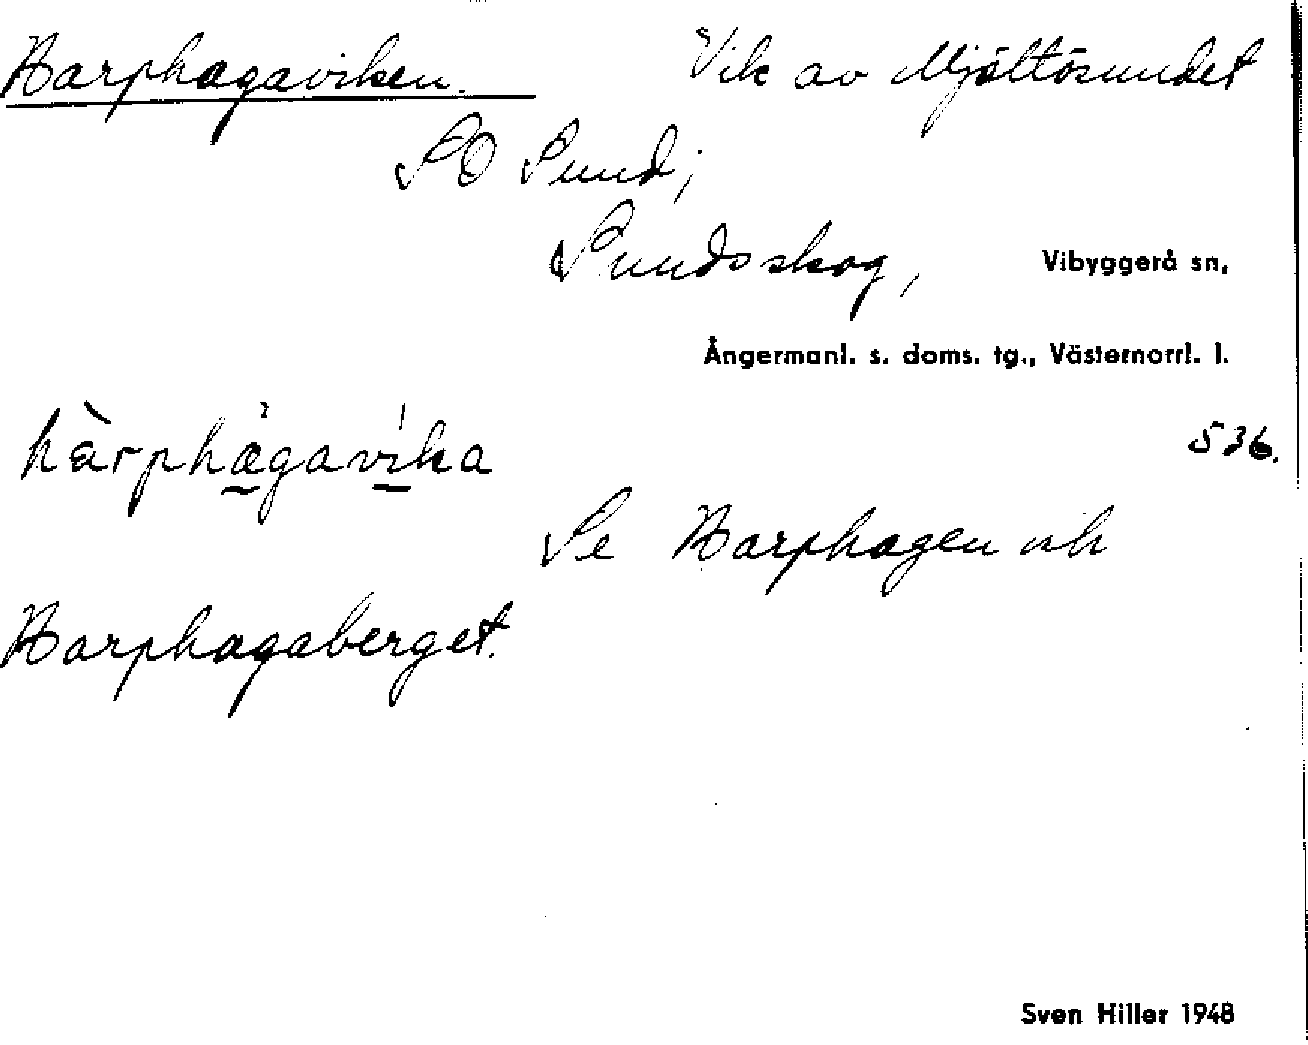 Harphagaviken. Vik av Mjältösundet
SO Sund;
Sundsskog, Vibyggerå sn,
Ångermanl. s. doms. tg., Västernorrl. l.
hàrphagavika 536.
Se Harphagen och
Harphagaberget.
Sven Hiller 1948